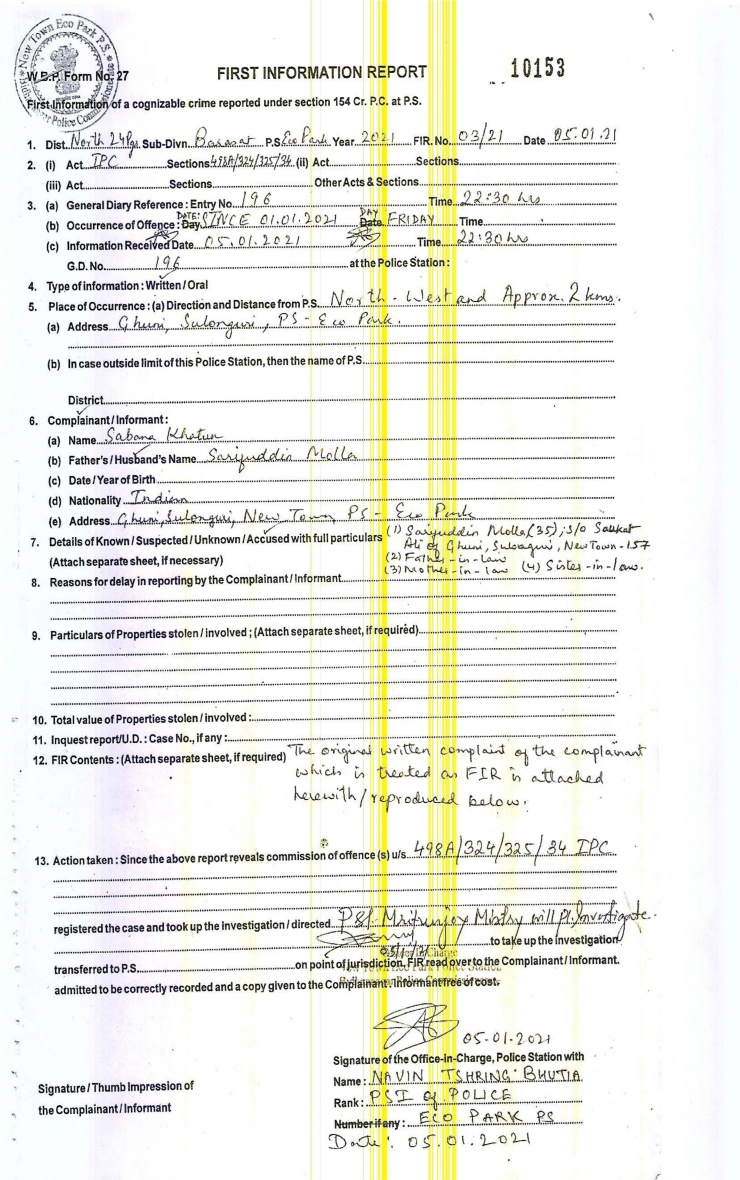 New Town Eco Park P.S.
W.B.P. Form No. 27
FIRST INFORMATION REPORT
10153
First Information of a cognizable crime reported under section 154 Cr. P.C. at P.S.
1. Dist. North 24 Pgs Sub-Divn. Barasat P.S. Eco Park Year 2021 FIR. No. 03/21 Date 05.01.21
2. (i) Act IPC Sections 498A/324/325/34 (ii) Act Sections
(iii) Act Sections Other Acts & Sections
3. (a) General Diary Reference : Entry No 196 Time 22:30 hrs
(b) Occurrence of Offence : Day DATE: SINCE 01.01.2021 Date DAY FRIDAY Time
(c) Information Received Date 05.01.2021 Time 22:30 hrs
G.D. No. 196 at the Police Station :
4. Type of information : Written / Oral
5. Place of Occurrence : (a) Direction and Distance from P.S. North-West and Approx. 2 kms.
(a) Address Ghuni, Sulonguri, PS - Eco Park.
(b) In case outside limit of this Police Station, then the name of P.S
District
6. Complainant / Informant :
(a) Name Sabana Khatun
(b) Father's / Husband's Name Sariyuddin Molla
(c) Date / Year of Birth
(d) Nationality Indian
(e) Address Ghuni, Sulonguri, New Town PS - Eco Park
7. Details of Known / Suspected / Unknown / Accused with full particulars (1) Sariyuddin Molla (35), S/O Saukat
Ali of Ghuni, Sulonguri, New Town-157
(Attach separate sheet, if necessary) (2) Father-in-law
(3) Mother-in-law (4) Sister-in-law.
8. Reasons for delay in reporting by the Complainant / Informant
9. Particulars of Properties stolen / involved ; (Attach separate sheet, if required)
10. Total value of Properties stolen / involved :
11. Inquest report/U.D. : Case No., if any :
12. FIR Contents : (Attach separate sheet, if required) The original written complaint of the complainant
which is treated as FIR is attached
herewith/reproduced below.
13. Action taken : Since the above report reveals commission of offence (s) u/s 498A/324/325/34 IPC
registered the case and took up the investigation / directed PSI Mritunjoy Mistry will pl. Investigate.
to take up the investigation
transferred to P.S. on point of jurisdiction, FIR read over to the Complainant / Informant.
admitted to be correctly recorded and a copy given to the Complainant / Informant free of cost.
05.01.2021
Signature of the Office-in-Charge, Police Station with
Name : NAVIN TSHRING BHUTIA
Signature / Thumb Impression of
Rank : PSI of POLICE
the Complainant / Informant
Number if any : ECO PARK PS
Date: 05.01.2021